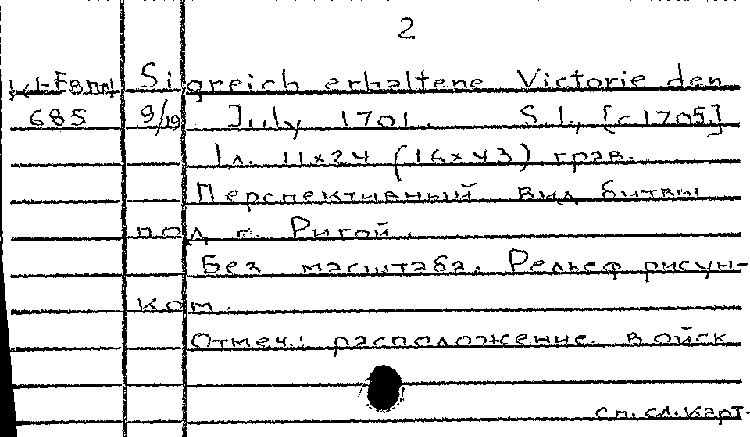 2
Sigreich erhaltene Victorie den
685 9/19 July 1701. S.l., [c 1705]
1 л. 11x24 (16x43) грав.
Перспективный вид битвы
под г. Ригой.
Без масштаба. Рельеф рисун-
ком.
Отмеч.: расположение войск
см. сл. карт.